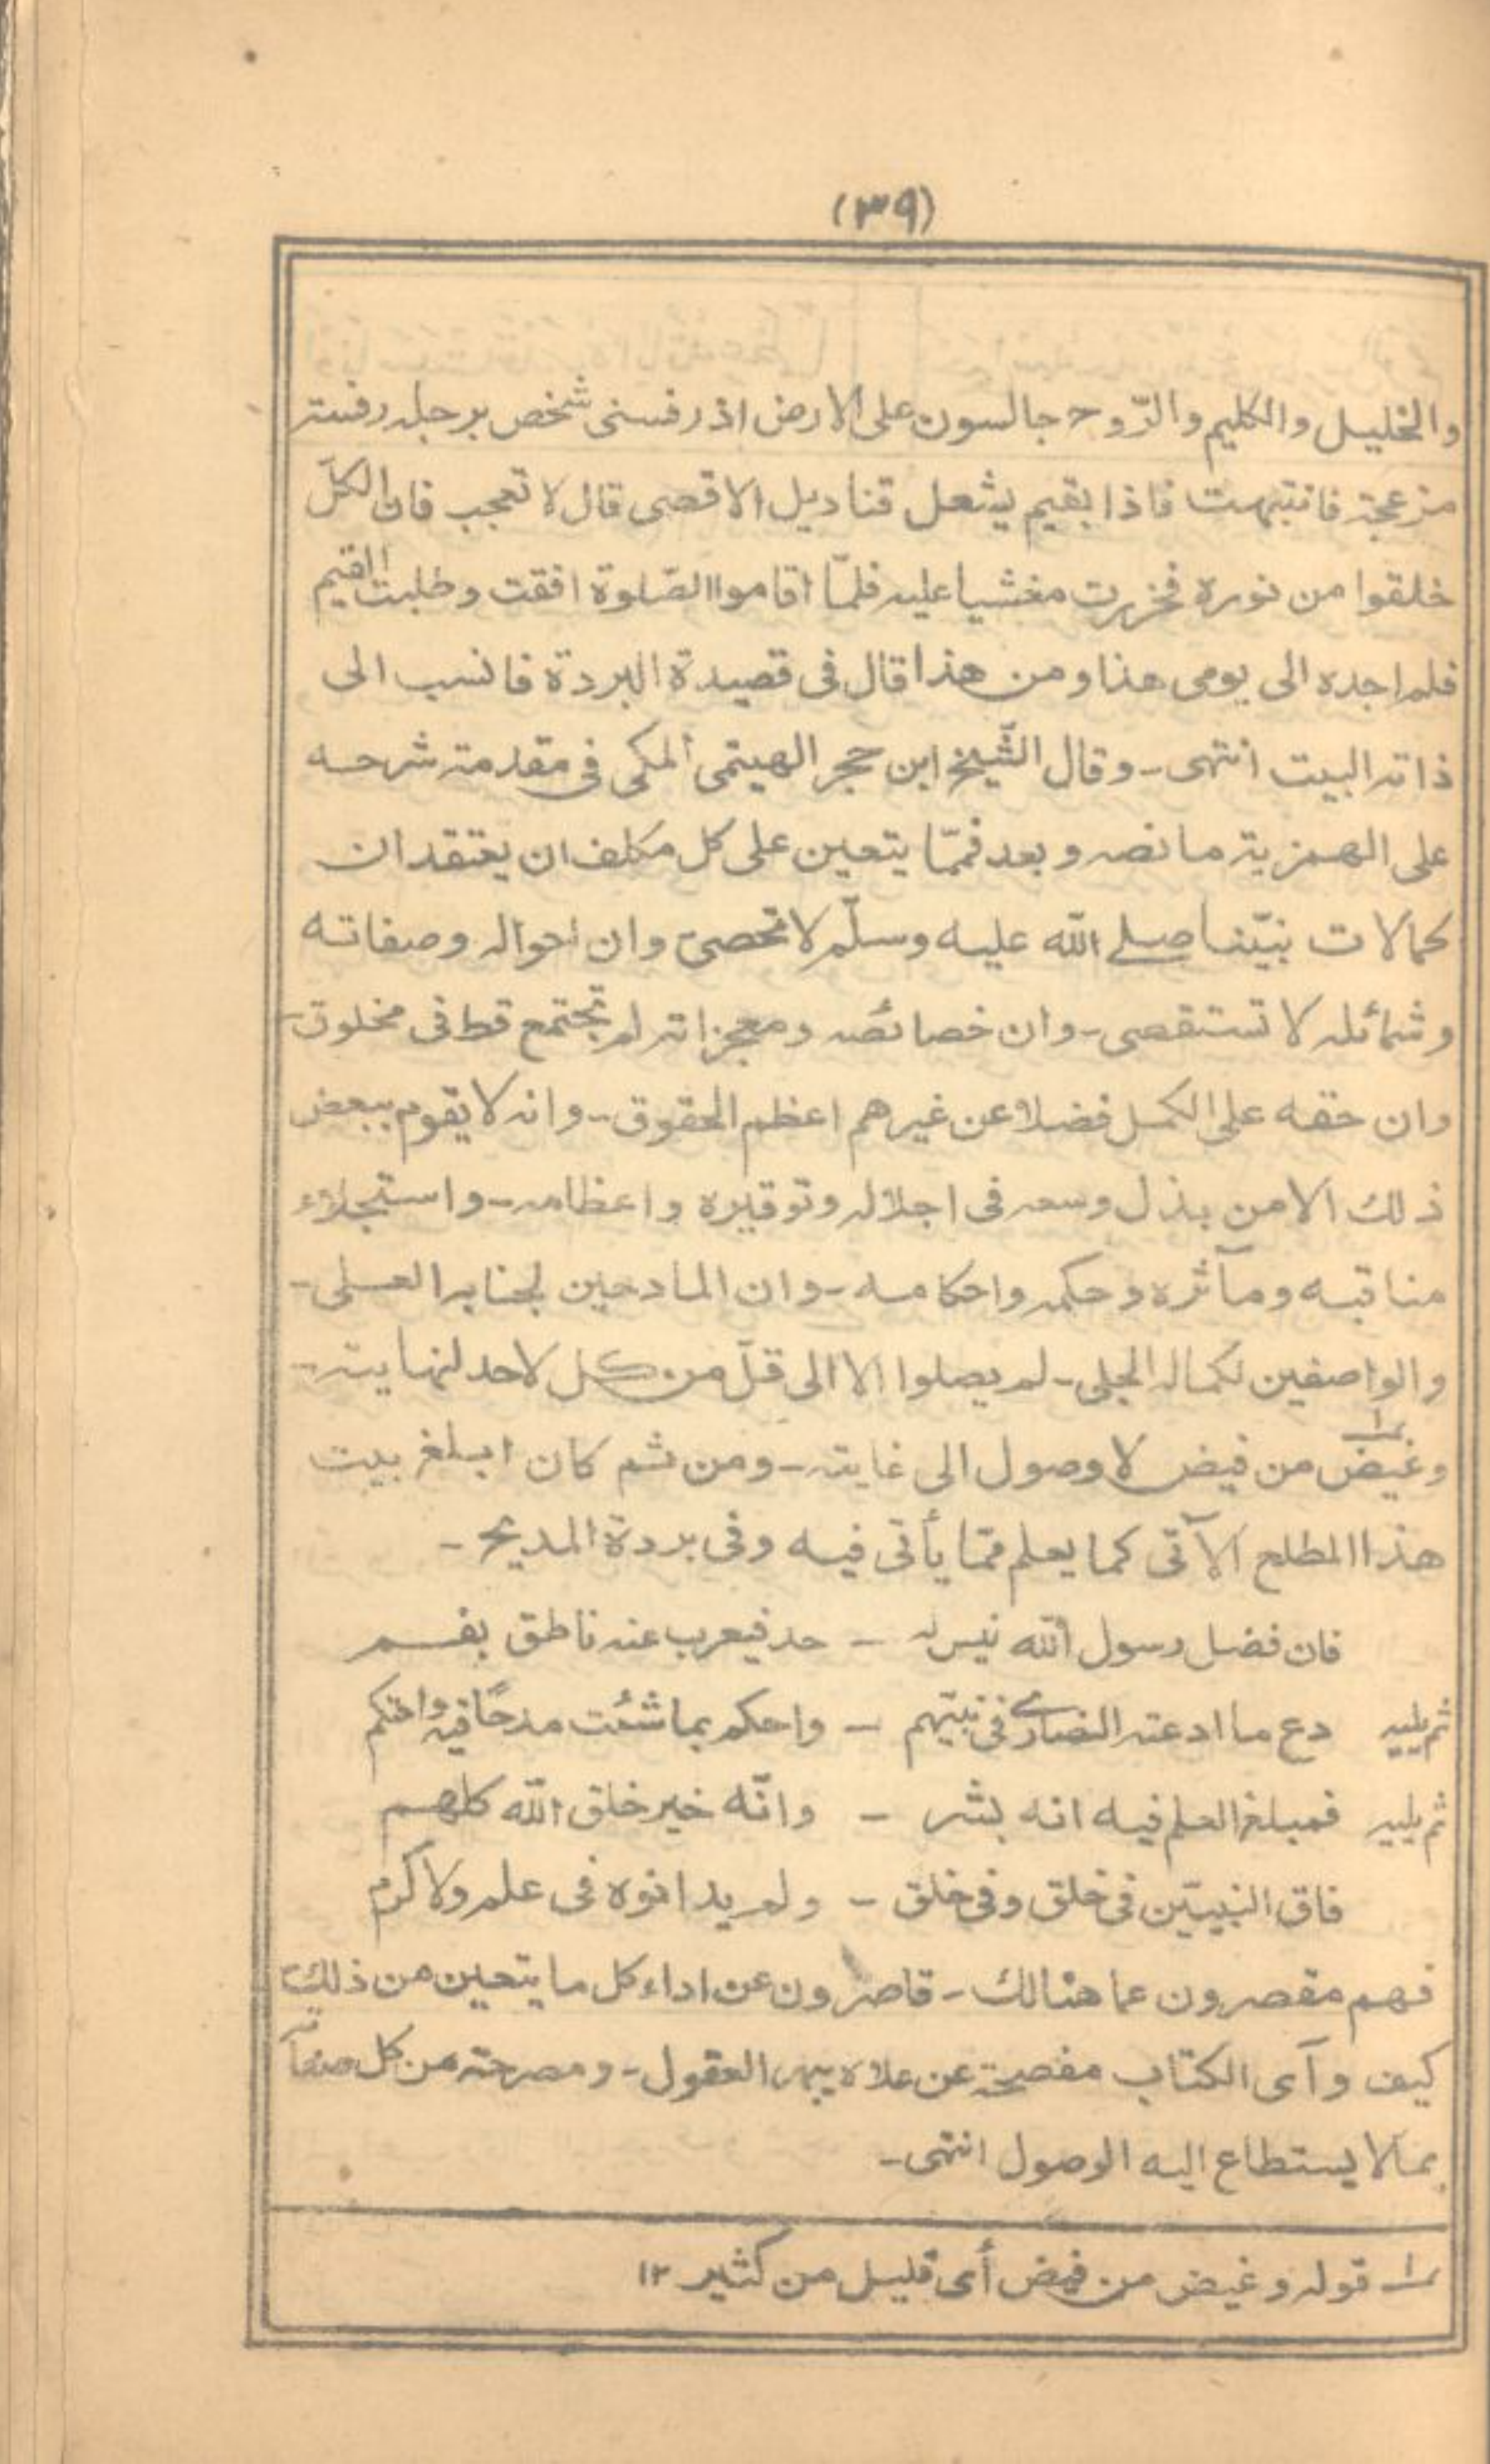 (٣٩)
والخليل والكليم والرّوح جالسون على الارض اذ رفسنى شخص برجله رفسة
مزعجة فانتبهت فاذا بقيم يشعل قناديل الاقصى قال لا تعجب فان الكلّ
خلقوا من نوره فخررت مغشيا عليه فلمّا اقاموا الصّلوة افقت وطلبت القيم
فلم اجده الى يومى هذا ومن هذا قال فى قصيدة البردة فانسب الى
ذاته البيت انتهى - وقال الشّيخ ابن حجر الهيتمى المكى فى مقدمة شرحه
على الهمزية ما نصه وبعد فممّا يتعين على كل مكلف ان يعتقد ان
كمالات نبيّنا صلى الله عليه وسلّم لا تحصى وان احواله وصفاته
وشمائله لا تستقصى - وان خصائصه ومعجزاته لم تجتمع قط فى مخلوق -
وان حقه على الكمل فضلا عن غيرهم اعظم الحقوق - وانه لا يقوم ببعض
ذلك الا من بذل وسعه فى اجلاله وتوقيره واعظامه - واستجلاء
مناقبه ومآثره وحكمه واحكامه - وان المادحين لجنابه العلى -
والواصفين لكماله الجلى - لم يصلوا الا الى قلّ من كل لاحد لنهايته -
وغيض١ من فيض لا وصول الى غايته - ومن ثم كان ابلغ بيت
هذا المطلع الآتى كما يعلم ممّا يأتى فيه وفى بردة المديح -
فان فضل رسول الله ليس له - حد فيعرب عنه ناطق بفم
ثم يليه دع ما ادعته النصارى فى نبيّهم - واحكم بما شئت مدحًا فيه واحتكم
ثم يليه فمبلغ العلم فيه انه بشر - وانّه خير خلق الله كلهم
فاق النبيّين فى خلق وفى خلق - ولم يدانوه فى علم ولا كرم
فهم مقصرون عما هنالك - قاصرون عن اداء كل ما يتعين من ذلك
كيف وآى الكتاب مفصحة عن علاه يبهر العقول - ومصرحة من كل صفاته
بما لا يستطاع اليه الوصول انتهى -
١ قوله وغيض من فيض أى قليل من كثير ١٢